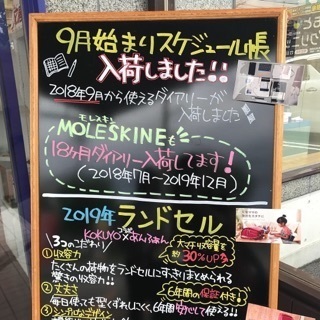 9月始まりスケジュール帳
入荷しました!!
2018年9月から使えるダイアリーが
入荷しました
モレスキン
MOLESKINEも
18ヶ月ダイアリー入荷してます!
(2018年7月〜2019年12月)
2019年 ランドセル
KOKUYO×あんふぁん
3つのこだわり
①収容力
たくさんの荷物をランドセルにすっきりまとめられる
驚きの収容力!!
大マチ収容量を
約30%UP
②丈夫さ
6年間の保証付き!
毎日使っても型くずれしにくく、6年間安心して使える!
③シンプルなデザイン